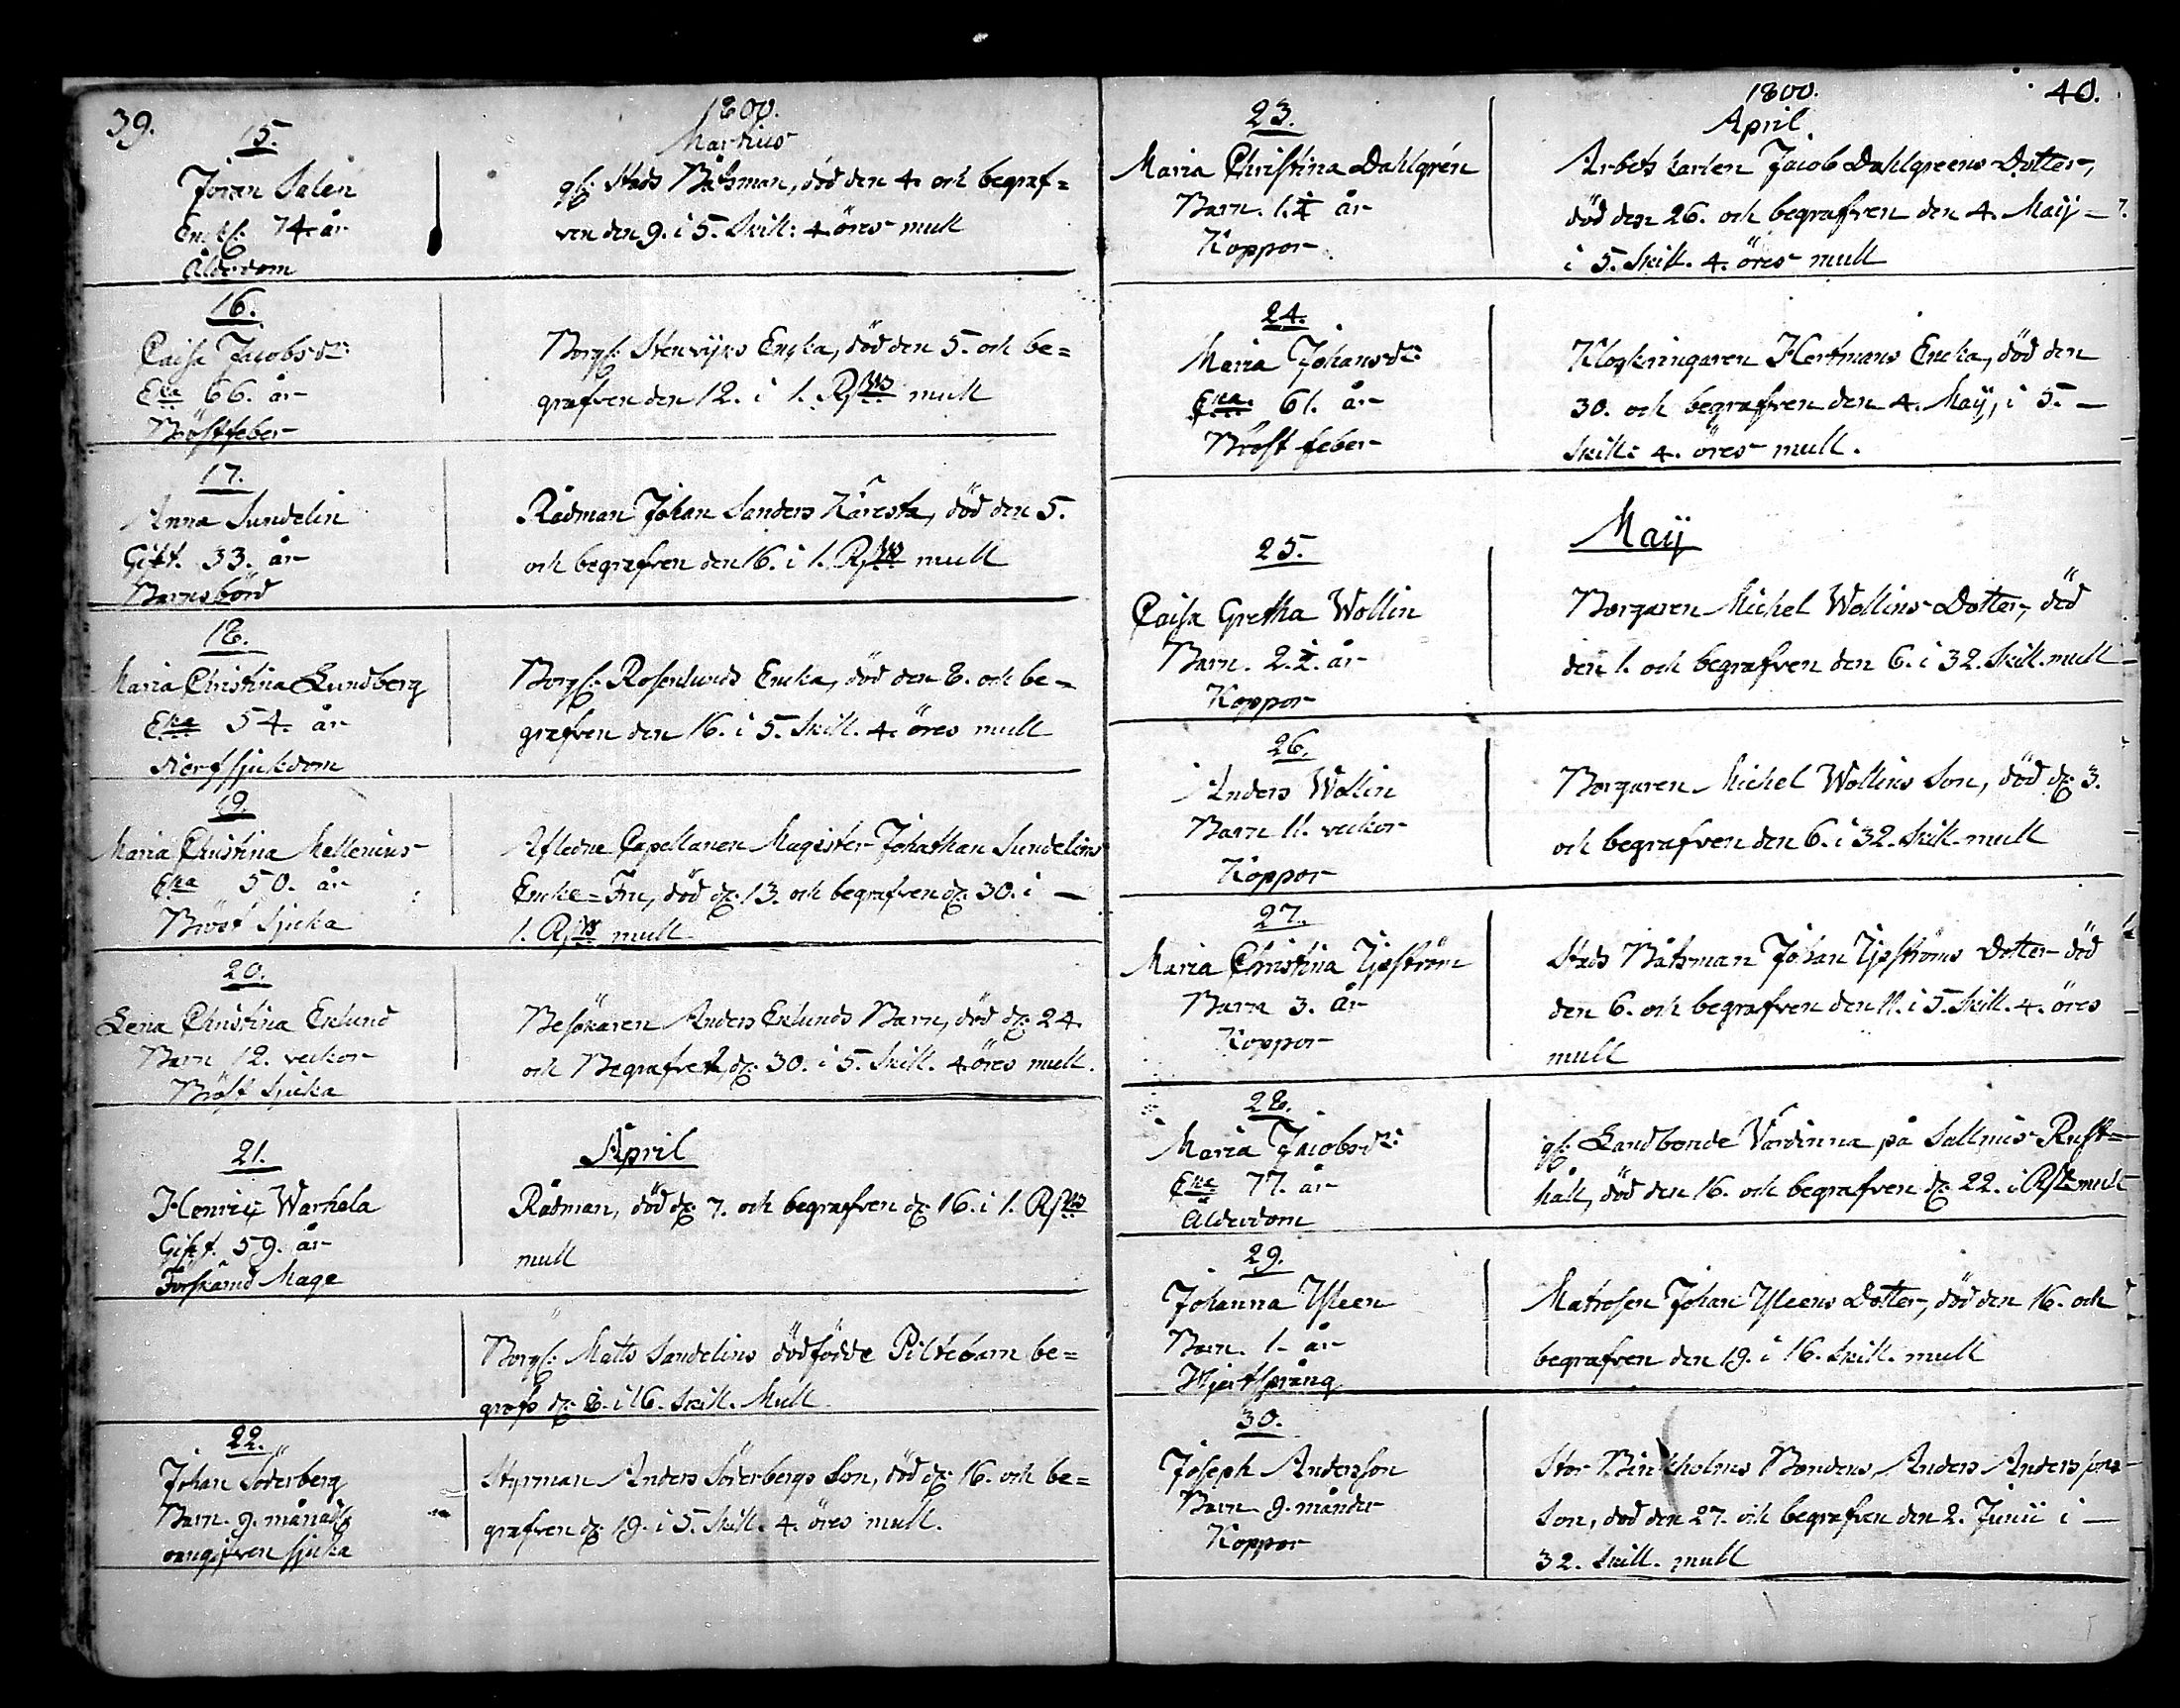 39.
1800.
Martius
15.
Jöran Salen
74 år
Ålderdom
Stads Båtsman, död den 4. och begraf=
ven den 9. i 5. Skill: 4 öres mull
16.
Caisa Jacobsdr:
Eka 66. år
Bröstfeber
Enka, död den 5. och be=
grafven den 12. i 1. mull
17.
Anna Sundelin
Gift. 33. år
Barnsbörd
Rådman Johan Sanders Käresta, död den 5.
och begrafven den 16. i 1. mull
18.
Maria Christina Lundberg
Eka 54. år
Nerfsjukdom
Rosenlunds Encka, död den 8. och be=
grafven den 16. i 5. Skill. 4. öres mull
19.
Maria Christina Mellenius
Eka 50. år
Bröst Sjuka
Afledne Capellanen Magister Johathan Sundelins
Encke=Fru, död d: 13. och begrafven d: 30. i —
1. mull
20.
Lena Christina Enlund
Barn 12. veckor
Bröst Sjuka
Besökaren Anders Enlunds Barn, död d: 24.
och Begrafven d: 30. i 5. Skill. 4 öres mull.
April
21.
Henric Warhela
Gift. 59. år
Förskämd Mage
Rådman, död d: 7. och begrafven d: 16. i 1.
mull
Matts Sandelins dödfödde Piltebarn be=
grofs d: 8. i 16. Skill. Mull
22.
Johan Söderberg
Barn. 9. månad
oangifven sjuka
Styrman Anders Söderbergs Son, död d: 16. och be=
grafven d: 19. i 5. Skill. 4. öres mull.
1800.
40.
April.
23.
Maria Christina Dahlgrén
Barn. 1. år
Koppor
Arbets karlen Jacob Dahlgreens Dotter,
död den 26. och begrafven den 4. Maij —
i 5. Skill. 4. öres mull
24.
Maria Johansdr:
Eka. 61. år
Bröst feber
Klockringaren Hertmans Encka, död den
30. och begrafven den 4. Maij, i 5. —
Skill: 4. öres mull.
Maij
25.
Caisa Gretha Wollin
Barn. 2. år
Koppor
Borgaren Michel Wollins Dotter, död
den 1. och begrafven den 6. i 32. Skill. mull
26.
Anders Wollin
Barn 11. veckor
Koppor
Borgaren Michel Wollins Son, död d: 3.
och begrafven den 6. i 32. Skill. mull
27.
Maria Christina
Barn 3. År
Koppor
Stads Båtsman Johan Dotter död
den 6. och begrafven den 11. i 5. Skill. 4. öres
mull
28.
Maria Jacobsdr:
Eka 77. år
Ålderdom
Landbonde Värdinna på Sallmis Rust=
håll, död den 16. och begrafven d: 22. i mull
29.
Johanna Ysleen
Barn. 1. år
Hjertsprång
Matrosen Johan Ysleens Dotter, död den 16. och
begrafven den 19. i 16. Skill. mull
30.
Joseph Andersson
Barn 9. månder
Koppor
Stor Birkholms Bondens, Anders Anderssons
Son, död den 27. och begrafven den 2. Junii i —
32. Skill. mull